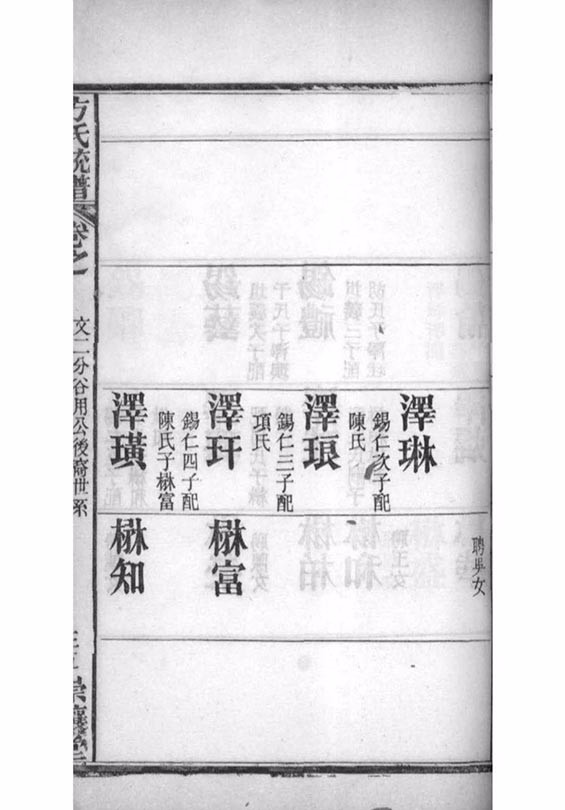 聘吳女
澤琳
錫仁次子配
陳氏
澤琅
錫仁三子配
項氏
澤玕
錫仁四子配
陳氏子楙富
澤璜
楙富
楙知
方氏統譜
卷之
文二分谷用公後裔世系